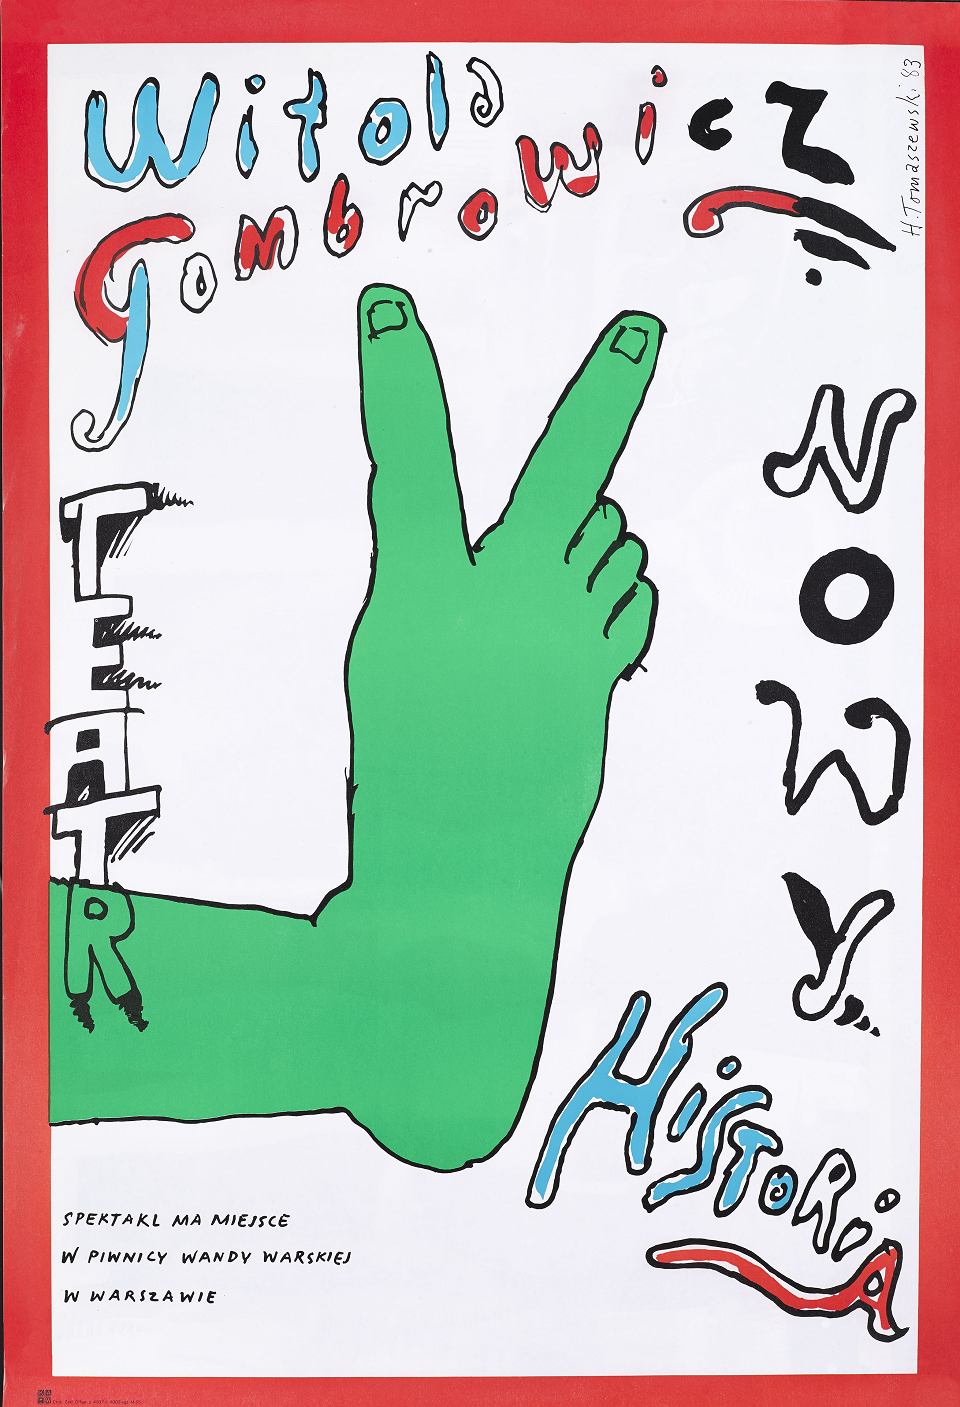 Witold
Gombrowicz
H. Tomaszewski 83
TEATR
NOWY...
HISTORIA
SPEKTAKL MA MIEJSCE
W PIWNICY WANDY WARSKIEJ
W WARSZAWIE